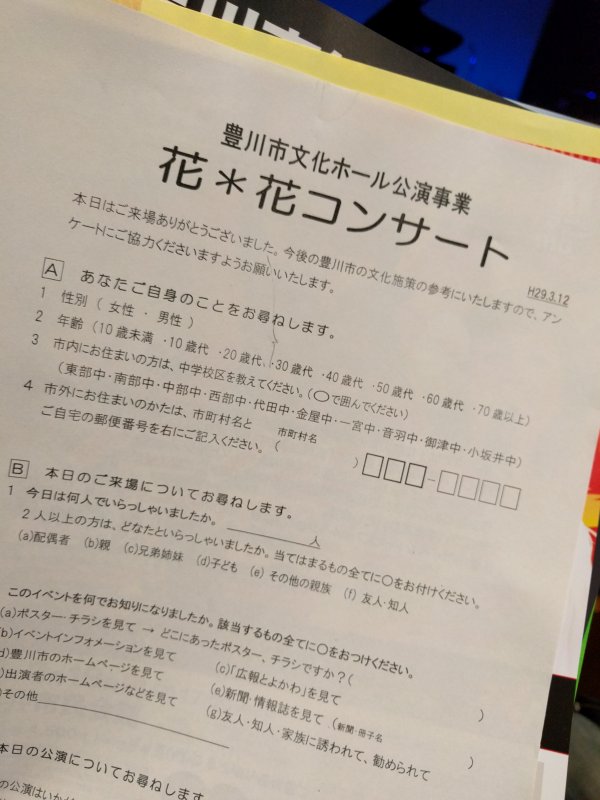 豊川市文化ホール公演事業
花＊花コンサート
H29.3.12
本日はご来場ありがとうございました。今後の豊川市の文化施策の参考にいたしますので、アン
ケートにご協力くださいますようお願いいたします。
A あなたご自身のことをお尋ねします。
1 性別（ 女性 ・ 男性 ）
2 年齢（10歳未満 ・10歳代 ・20歳代 ・30歳代 ・40歳代 ・50歳代 ・60歳代 ・70歳以上）
3 市内にお住まいの方は、中学校区を教えてください。（○で囲んでください）
（東部中・南部中・中部中・西部中・代田中・金屋中・一宮中・音羽中・御津中・小坂井中）
4 市外にお住まいのかたは、市町村名と 市町村名
ご自宅の郵便番号を右にご記入ください。（ ）□□□-□□□□
B 本日のご来場についてお尋ねします。
1 今日は何人でいらっしゃいましたか。 ＿＿＿＿人
2人以上の方は、どなたといらっしゃいましたか。当てはまるもの全てに○をお付けください。
(a)配偶者 (b)親 (c)兄弟姉妹 (d)子ども (e) その他の親族 (f) 友人・知人
このイベントを何でお知りになりましたか。該当するもの全てに○をおつけください。
(a)ポスター・チラシを見て → どこにあったポスター、チラシですか？（ ）
(b)イベントインフォメーションを見て (c)「広報とよかわ」を見て
d)豊川市のホームページを見て (e)新聞・情報誌を見て（新聞・冊子名 ）
)出演者のホームページなどを見て (g)友人・知人・家族に誘われて、勧められて
)その他
本日の公演についてお尋ねしま